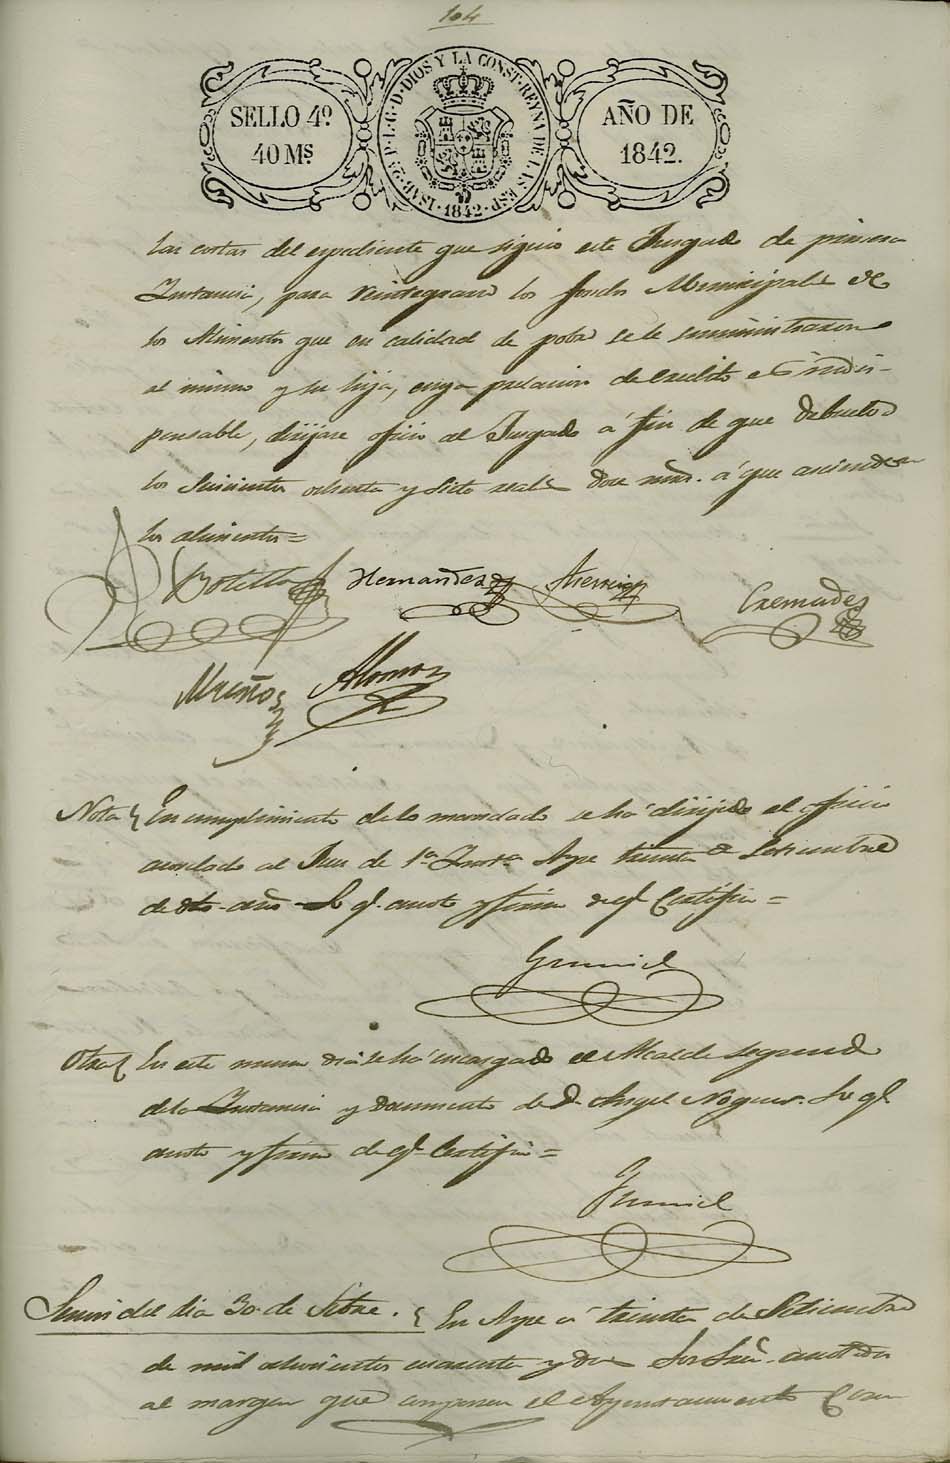 104
SELLO 4º
40 Mˢ
ISAB. 2ª P. L. G. D. DIOS Y LA CONST. REYNA DE LAS ESP.
1842
AÑO DE
1842.
las costas del espediente que siguio este Jusgado de primera
Instancia, para reintegrar los fondos Municipales de
los Alimentos que en calidad de pobre se le suministraron
al mismo y su hija, cuya prelacion de credito es indis-
pensable, dirijase oficio al Jusgado á fin de que debuelva
los Seiscientos ochenta y siete reales doce mrs. á que ascienden
los alimentos =
Botella Hernandez Cremades
Mreño Alonso
Nota En cumplimiento de lo mandado se há dirijido el oficio
acordado al Juez de 1ª Instª Aspe treinta de Setiembre
de dho año Lo q. anoto y firmo de q. Certifico =
Gumiel
Otra En este mismo dia se há encargado el Alcalde segundo
de la Instancia y documento de D. Angel Noguer. Lo q.
anoto y firmo de q. Certifico =
Gumiel
Sesion del dia 30 de Setbre. En Aspe á treinta de Setiembre
de mil ochocientos cuarenta y dos Los Sres. anotados
al margen que componen el Ayuntamiento Cons